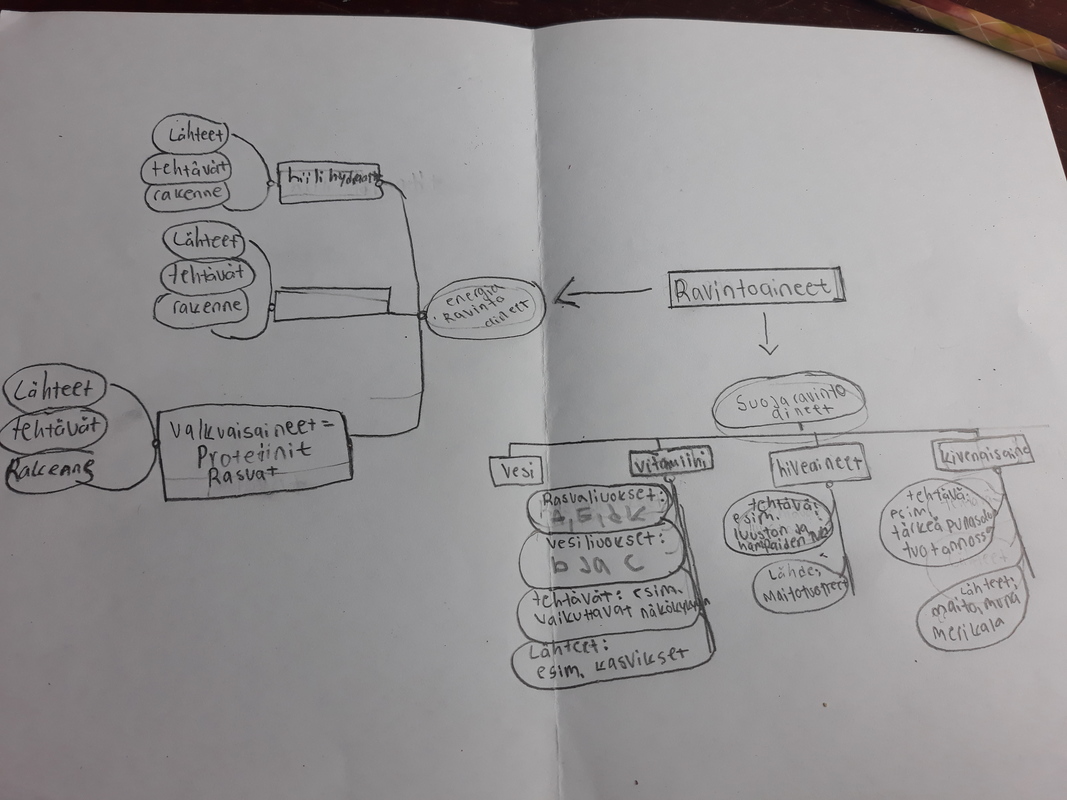 Ravintoaineet
energia
Ravinto
aineet
Lähteet
tehtävät
rakenne
hiilihydraatit
Lähteet
tehtävät
rakenne
Lähteet
tehtävät
Rakenne
Valkvaisaineet=
Proteiinit
Rasvat
Suojaravinto
aineet
Vesi
vitamiini
Rasvaliuokset:
A,E,d,K
Vesiliuokset:
b ja C
tehtävät: esim.
vaikuttavat näkökykyyn
Lähteet:
esim. kasvikset
hiveaineet
tehtävä:
esim.
luuston ja
hampaiden
Lähde;
Maitotuotteet
kivenaisaine
tehtävä:
esim.
tärkeä punasolu
tuotannossa
Lähteet;
maito, muna
merikala